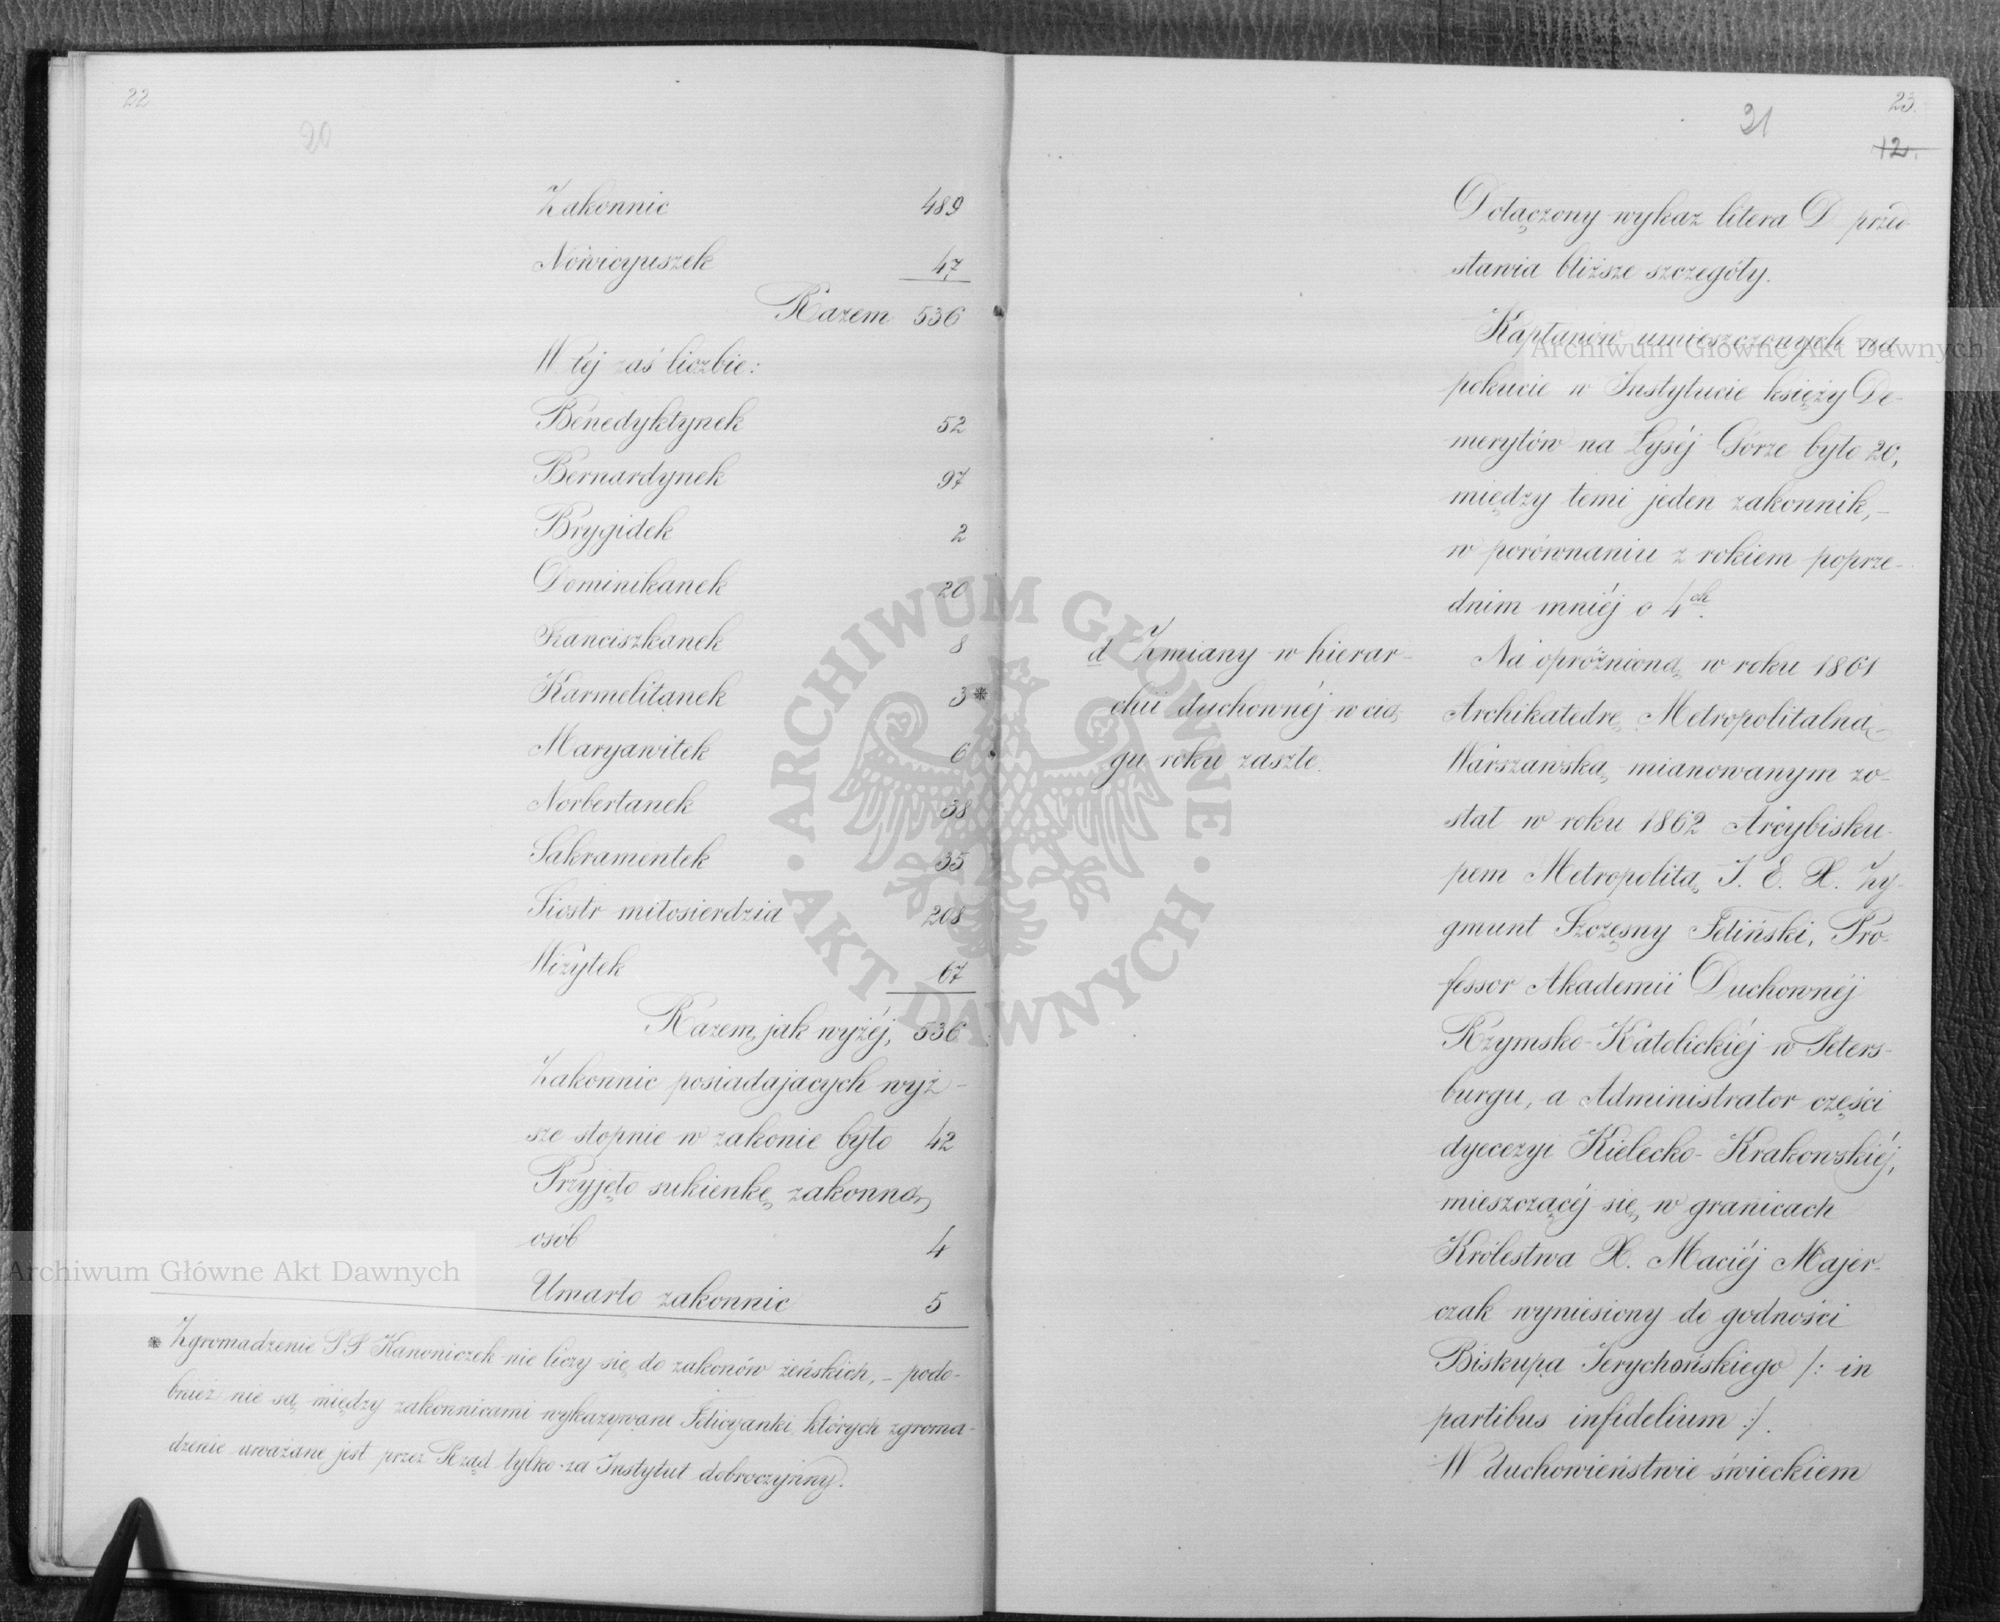 22
20
Zakonnic 489
Nowicyuszek 47
Razem 536
W tej zaś liczbie:
Benedyktynek 52
Bernardynek 97
Brygidek 2
Dominikanek 20
Franciszkanek 8
Karmelitanek 3*
Maryawitek 6
Norbertanek 38
Sakramentek 35
Siostr miłosierdzia 208
Wizytek 67
Razem, jak wyżéj, 536
Zakonnic posiadających wyż-
sze stopnie w zakonie było 42
Przyjęto sukienkę zakonną
osób 4
Umarło zakonnic 5
* Zgromadzenie P.P. Kanoniczek nie liczy się do zakonów żeńskich, – podo-
bnież nie są między zakonnicami wykazywane Felicyanki, których zgroma-
dzenie uważane jest przez Rząd tylko za Instytut dobroczynny.
23.
21
12.
Dołączony wykaz litera D przed
stawia bliższe szczegóły.
Kapłanów umieszczonych na
pokucie w Instytucie księży De-
merytów na Łyséj Górze było 20,
między temi jeden zakonnik, –
w porównaniu z rokiem poprze-
dnim mniéj o 4ch.
d Zmiany w hierar-
chii duchownéj w cią
gu roku zaszłe.
Na opróżnioną w roku 1861
Archikatedrę Metropolitalną
Warszawską mianowanym zo-
stał w roku 1862 Arcybisku-
pem Metropolitą J. E. X. Zy-
gmunt Szczęsny Feliński, Pro-
fessor Akademii Duchownéj
Rzymsko-Katolickiéj w Peters-
burgu, a Administrator części
dyecezyi Kielecko-Krakowskiéj,
mieszczącéj się w granicach
Królestwa X. Maciéj Majer-
czak wyniesiony do godności
Biskupa Jerychońskiego /: in
partibus infidelium :/.
W duchowieństwie świeckiem
Archiwum Główne Akt Dawnych
Archiwum Główne Akt Dawnych
ARCHIWUM GŁÓWNE · AKT DAWNYCH ·